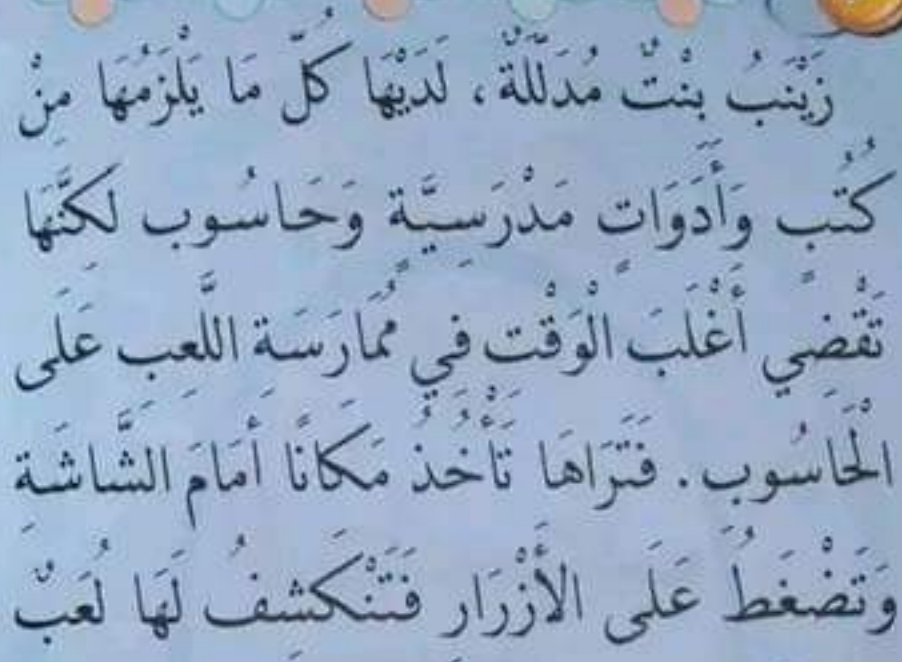 زَيْنَبُ بِنْتٌ مُدَلَّلَةٌ، لَدَيْهَا كُلّ مَا يَلْزَمُهَا مِنْ
كُتُبٍ وَأَدَوَاتٍ مَدْرَسِيَّةٍ وَحَاسُوبٍ لَكِنَّهَا
تَقْضِي أَغْلَبَ الْوَقْتِ فِي مُمَارَسَةِ اللَّعِبِ عَلَى
الْحَاسُوبِ. فَتَرَاهَا تَأْخُذُ مَكَانًا أَمَامَ الشَّاشَةِ
وَتَضْغَطُ عَلَى الأَزْرَارِ فَتَنْكَشِفُ لَهَا لُعَبٌ